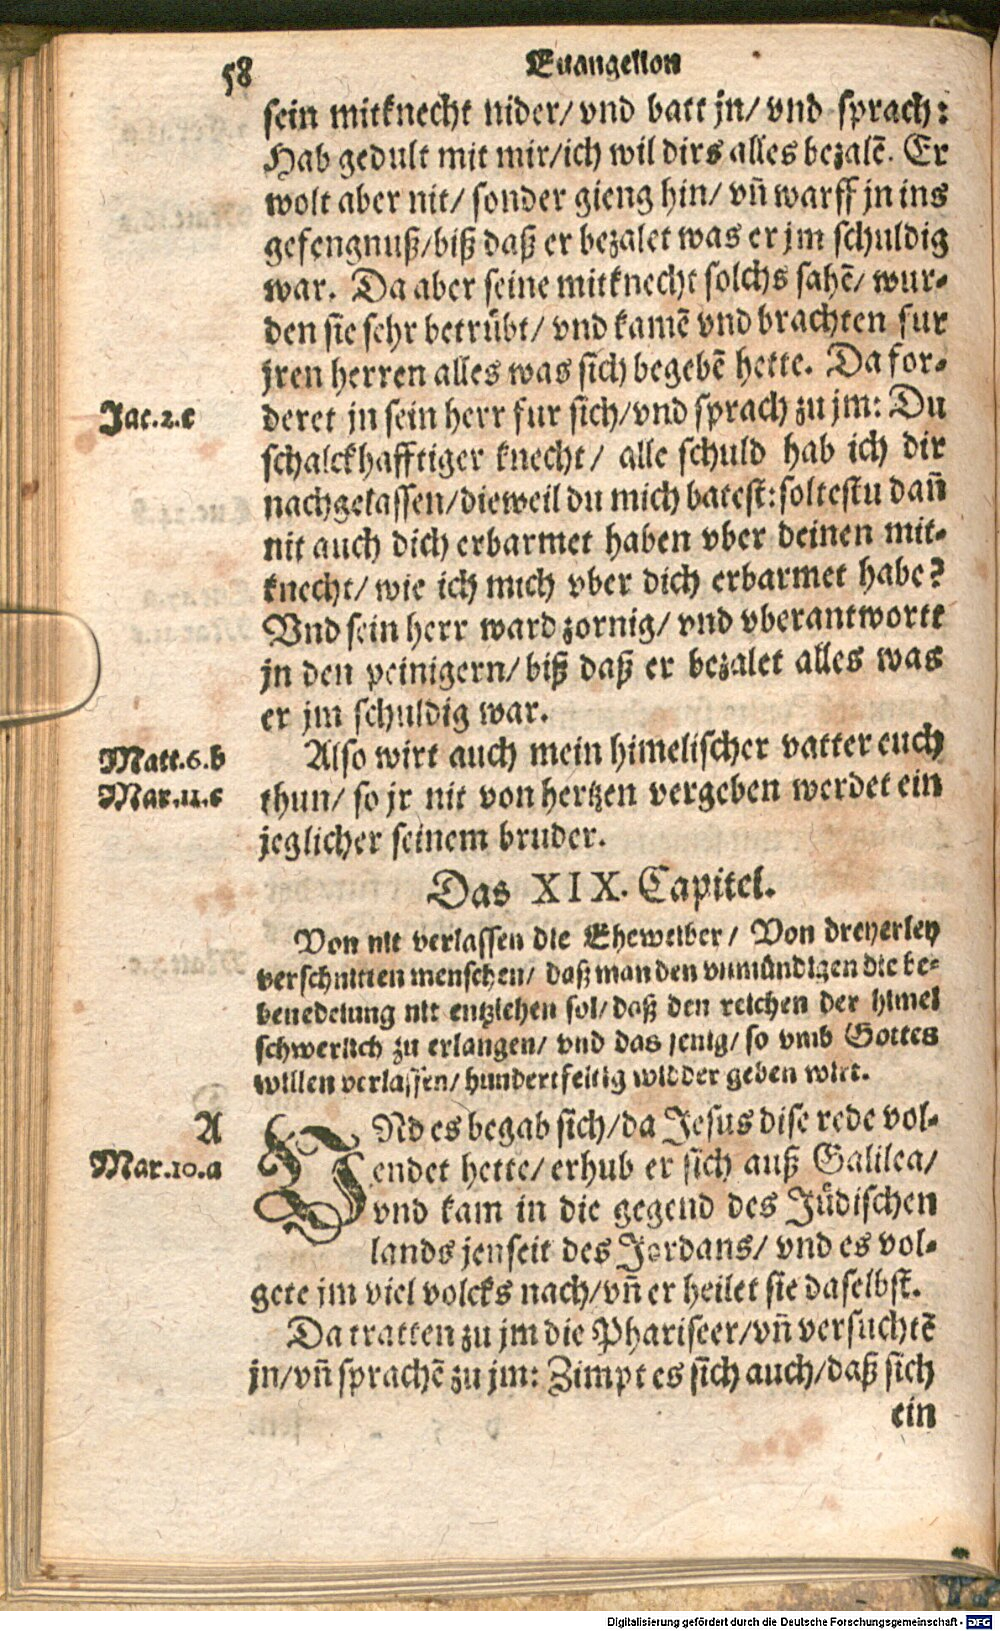 58 Euangelion
sein mitknecht nider/ vnd batt jn/ vnd sprach:
Hab gedult mit mir/ich wil dirs alles bezalē. Er
wolt aber nit/ sonder gieng hin/ vñ warff jn ins
gefengnuß/biß daß er bezalet was er jm schuldig
war. Da aber seine mitknecht solchs sahē/ wur-
den sie sehr betrübt/ vnd kamē vnd brachten fur
jren herren alles was sich begebē hette. Da for-
Jac.2.c
deret jn sein herr fur sich/vnd sprach zu jm: Du
schalckhafftiger knecht/ alle schuld hab ich dir
nachgelassen/dieweil du mich batest: soltestu dañ
nit auch dich erbarmet haben vber deinen mit-
knecht/ wie ich mich vber dich erbarmet habe?
Vnd sein herr ward zornig/ vnd vberantwortt
jn den peinigern/ biß daß er bezalet alles was
er jm schuldig war.
Matt.6.b
Also wirt auch mein himelischer vatter euch
Mar.11.c
thun/ so jr nit von hertzen vergeben werdet ein
jeglicher seinem bruder.
Das XIX. Capitel.
Von nit verlassen die Eheweiber/ Von dreyerley
verschnitten menschen/ daß man den vnmündigen die be-
benedeiung nit entziehen sol/ daß den reichen der himel
schwerlich zu erlangen/ vnd das jenig/ so vmb Gottes
willen verlassen/ hundertfeltig widder geben wirt.
A
VNd es begab sich/da Jesus dise rede vol-
Mar.10.a
endet hette/ erhub er sich auß Galilea/
vnd kam in die gegend des Jüdischen
lands jenseit des Jordans/ vnd es vol-
gete jm viel volcks nach/vñ er heilet sie daselbst.
Da tratten zu jm die Phariseer/vñ versuchtē
jn/vñ sprachē zu jm: Zimpt es sich auch/daß sich
ein
Digitalisierung gefördert durch die Deutsche Forschungsgemeinschaft - DFG